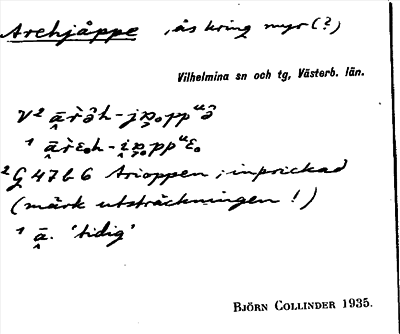 Arehjåppe , ås kring myr (?)
Vilhelmina sn och tg, Västerb. län.
V² ārə̀h-jp̥opp
¹ ārɛh-ip̥opp
²G 47 b 6 Arioppen ; inprickad
(märk utsträckningen !)
¹ ā. 'tidig'
BJÖRN COLLINDER 1935.